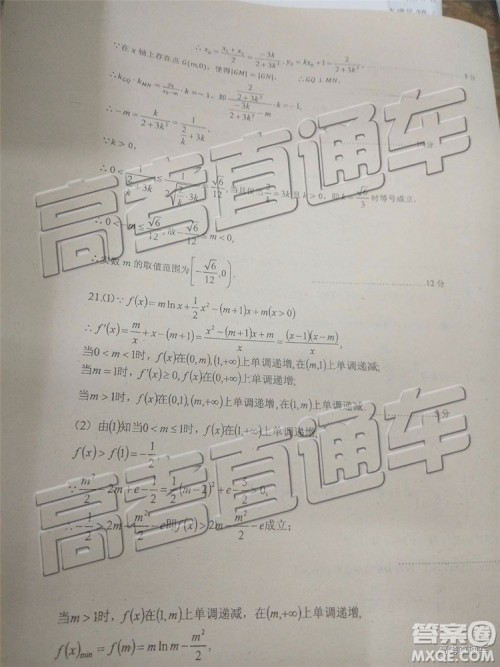 ∴x₀=(x₁+x₂)/2=-3k/(2+3k²), y₀=kx₀+1=2/(2+3k²)
8分
∵在 x 轴上存在点 G(m,0), 使得|GM|=|GN|, ∴GQ⊥MN.
∴-m=k/(2+3k²)=1/(2/k+3k),
∵k>0,
=3k且k>0, 即k=√6/3时等号成立.
-√6/12≤m<0,
数 m 的取值范围为[-√6/12,0).
12 分
21.(1)∵f(x)=m ln x+1/2x²-(m+1)x+m(x>0)
∴f'(x)=m/x+x-(m+1)=(x²-(m+1)x+m)/x=(x-1)(x-m)/x,
当0<m<1时, f(x)在(0,m),(1,+∞)上单调递增,在(m,1)上单调递减;
当m=1时, f'(x)≥0,f(x)在单调递增;
当m>1时, f(x)在(0,1),(m,+∞)上单调递增,在(1,m)上单调递减.
(2) 由(1)知当0<m≤1时, f(x)在(1,+∞)上单调递增,
f(x)>f(1)=-1/2,
∵m²/2-2m+e-1/2=1/2(m-2)²+e-5/2>0,
∴-1/2>2m-m²/2-e即f(x)>2m-m²/2-e成立;
当m>1时, f(x)在(1,m)上单调递减, 在(m,+∞)上单调递增,
f(x)min=f(m)=m ln m-m²/2,
高考直通车
高考直通车
答案圈
MXQE.COM